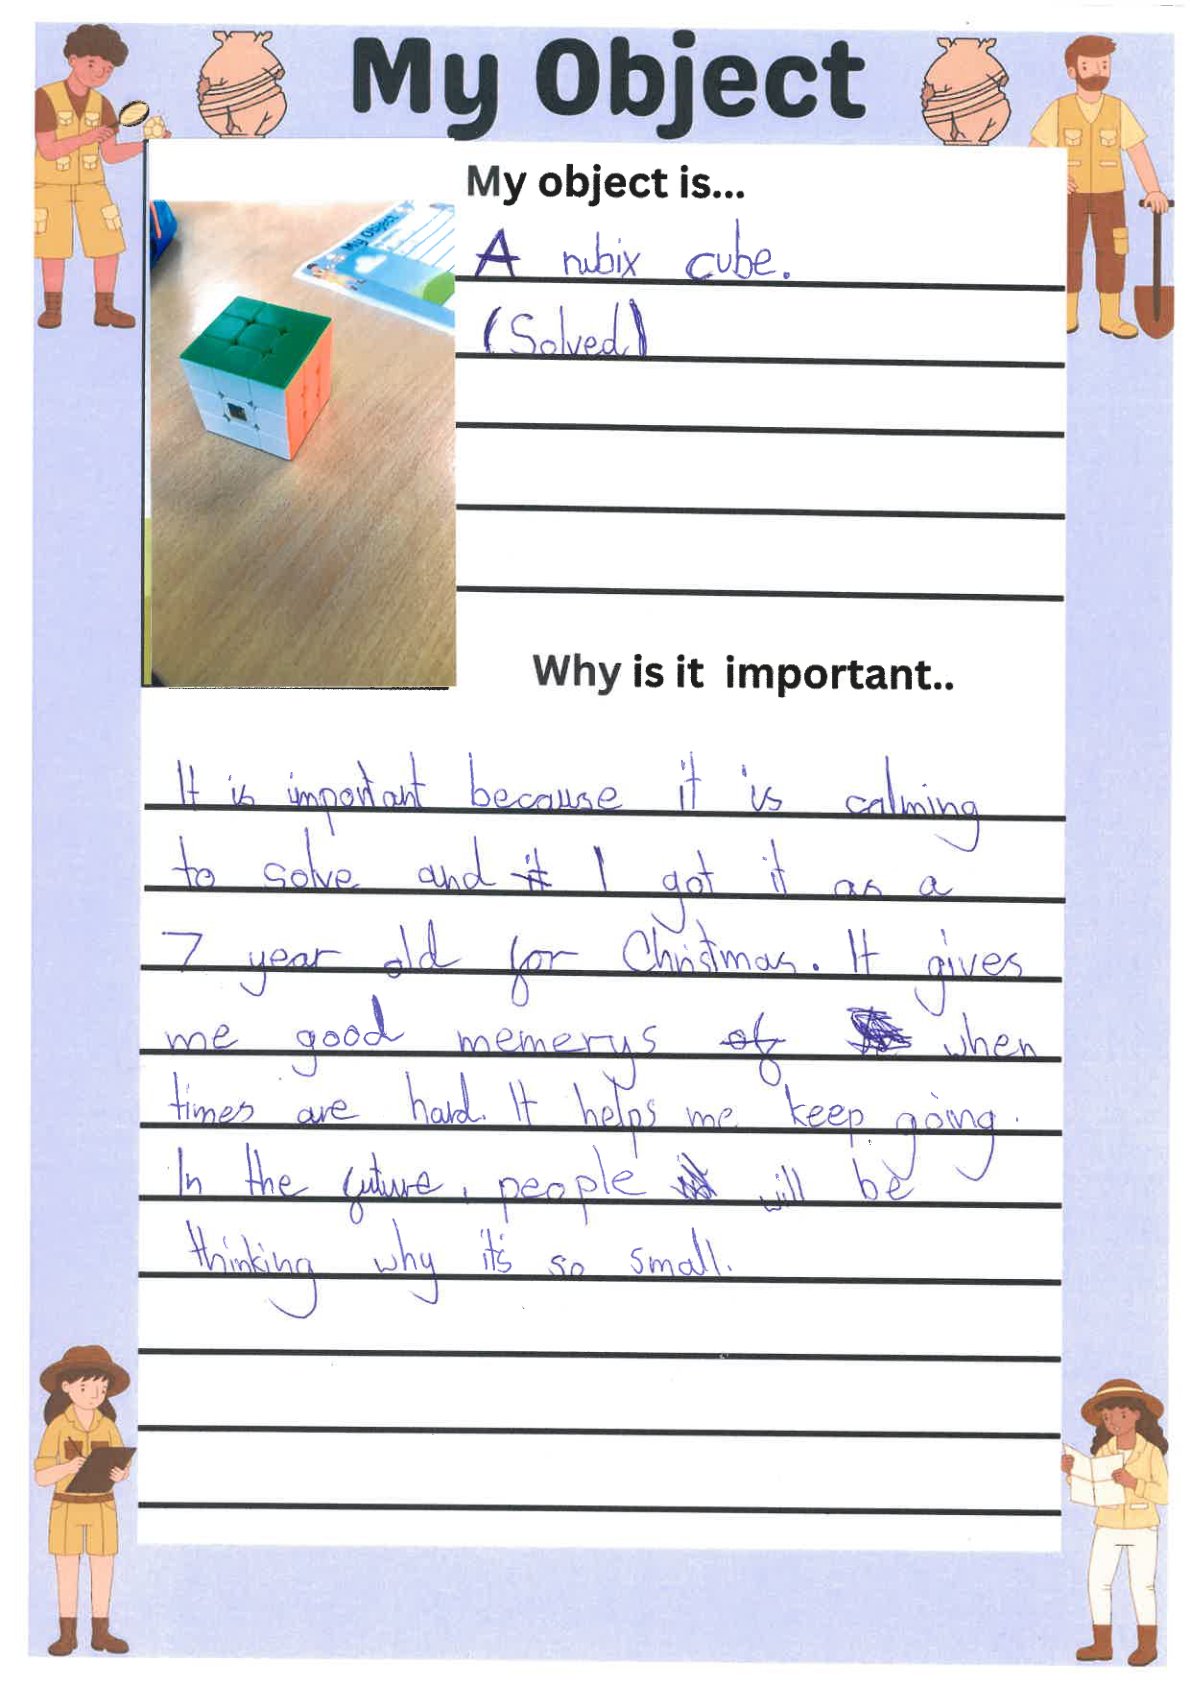 My Object
My object is...
A rubix cube.
(Solved)
My Object
Why is it important..
It is important because it is calming
to solve and it I got it as a
7 year old for Christmas. It gives
me good memerys of when
times are hard. It helps me keep going.
In the future, people will be
thinking why it's so small.